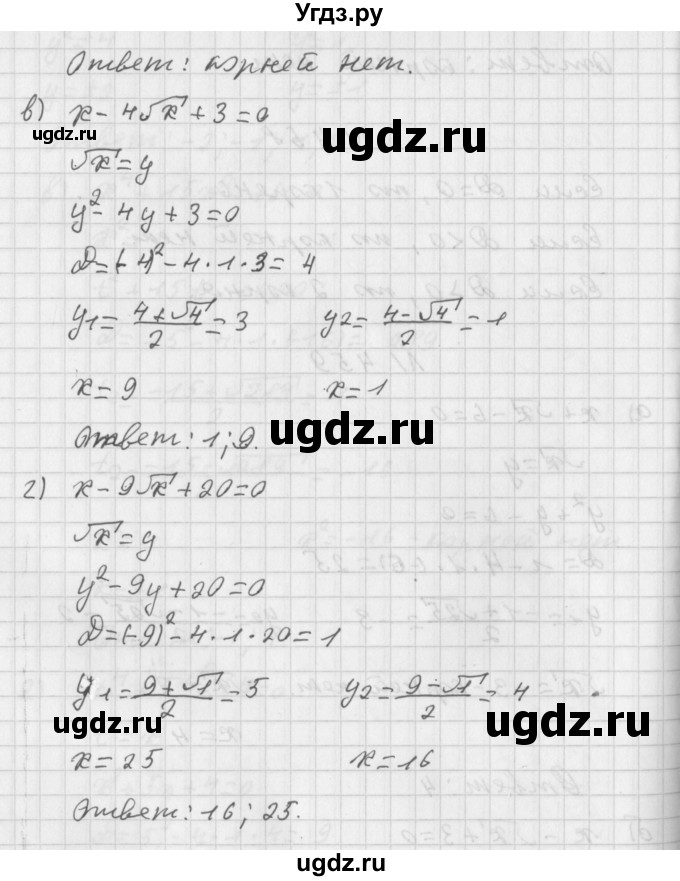 Угдз.ру
Ответ: корней нет.
в) x - 4√x + 3 = 0
ugdz.ru ugdz.ru
√x = y
y² - 4y + 3 = 0
D = (-4)² - 4·1·3 = 4
y1 = (4+√4)/2 = 3 y2 = (4-√4)/2 = 1
x = 9 x = 1
Ответ: 1; 9.
ugdz.ru
г) x - 9√x + 20 = 0
√x = y
y² - 9y + 20 = 0
D = (-9)² - 4·1·20 = 1
y1 = (9+√1)/2 = 5 y2 = (9-√1)/2 = 4
ugdz.ru ugdz.ru
x = 25 x = 16
Ответ: 16; 25.
ugdz.ru